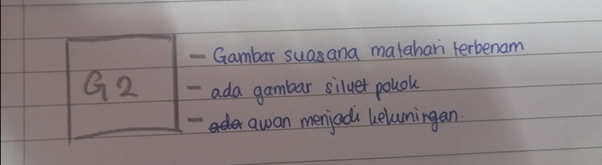 G2
- Gambar suasana matahari terbenam
- ada gambar siluet pokok
- ada awan menjadi kekuningan.